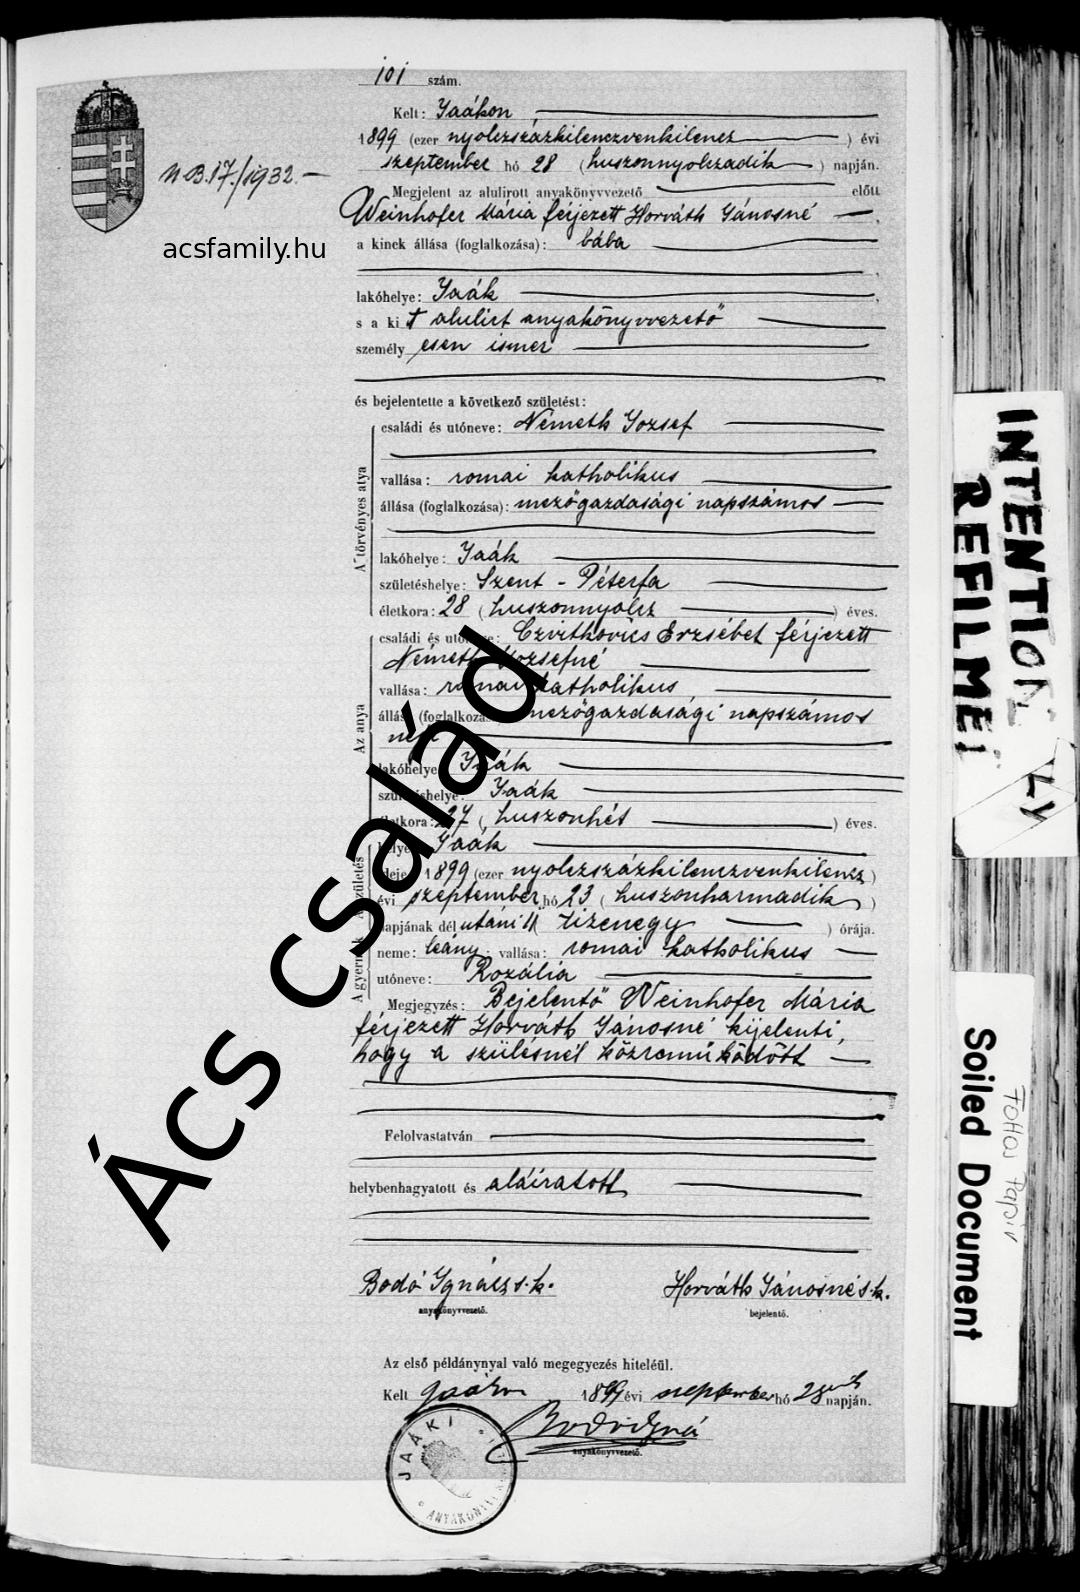 101 szám.
Kelt: Jaákon
1899 (ezer nyolczszázkilenczvenkilencz ) évi
szeptember hó 28 (huszonnyolczadik ) napján.
N B.17./1932.—
Megjelent az alulirott anyakönyvvezető előtt
Weinhofer Mária férjezett Horváth Jánosné
acsfamily.hu
a kinek állása (foglalkozása): bába
lakóhelye: Jaák
s a kit alulirt anyakönyvvezető
személyesen ismer
és bejelentette a következő születést:
A törvényes atya
családi és utóneve: Németh József
vallása: romai katholikus
állása (foglalkozása): mezőgazdasági napszámos
lakóhelye: Jaák
születéshelye: Szent - Péterfa
életkora: 28 (huszonnyolcz ) éves.
Az anya
családi és utóneve: Czvitkovics Erzsébet férjezett
Németh Józsefné
vallása: romai katholikus
állása (foglalkozása): mezőgazdasági napszámos
lakóhelye: Jaák
születéshelye: Jaák
életkora: 27 (huszonhét ) éves.
A gyermek születés
helye: Jaák
ideje: 1899 (ezer nyolczszázkilenczvenkilencz )
évi szeptember hó 23 (huszonharmadik )
napjának délutáni 11 (tizenegy ) órája.
neme: leány; vallása: romai katholikus
utóneve: Rozália
Megjegyzés: Bejelentő Weinhofer Mária
férjezett Horváth Jánosné kijelenti,
hogy a szülésnél közremüködött
Felolvastatván
helybenhagyatott és aláiratott
Bodó Ignácz s. k. Horváth Jánosné s. k.
anyakönyvvezető. bejelentő.
Az első példánynyal való megegyezés hiteléül.
Kelt Jaákon 1899 évi szeptember hó 28 napján.
Bodó Ignác
anyakönyvvezető.
JAÁKI
ANYAKÖNYVI
Ács család
INTENTION
REFILME
Soiled Document
Foltos Papír